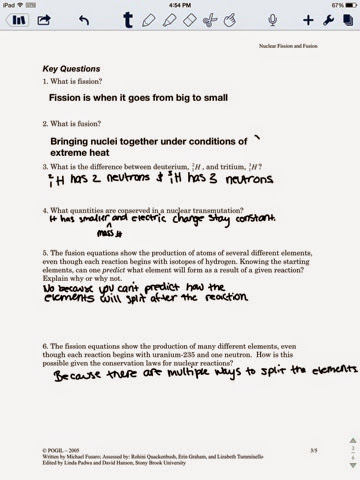 iPad
4:54 PM
67%
Nuclear Fission and Fusion
Key Questions
1. What is fission?
Fission is when it goes from big to small
2. What is fusion?
Bringing nuclei together under conditions of
extreme heat
3. What is the difference between deuterium, ²₁H, and tritium, ³₁H?
²₁H has 2 neutrons & ³₁H has 3 neutrons
4. What quantities are conserved in a nuclear transmutation?
It has smaller and electric charge stay constant.
mass #
5. The fusion equations show the production of atoms of several different elements,
even though each reaction begins with isotopes of hydrogen. Knowing the starting
elements, can one predict what element will form as a result of a given reaction?
Explain why or why not.
No because you can't predict how the
elements will split after the reaction
6. The fission equations show the production of many different elements, even
though each reaction begins with uranium-235 and one neutron. How is this
possible given the conservation laws for nuclear reactions?
Because there are multiple ways to split the elements.
© POGIL – 2005
3/5
Written by Michael Fusaro; Assessed by: Rohini Quackenbush, Erin Graham, and Lizabeth Tumminello
Edited by Linda Padwa and David Hanson, Stony Brook University